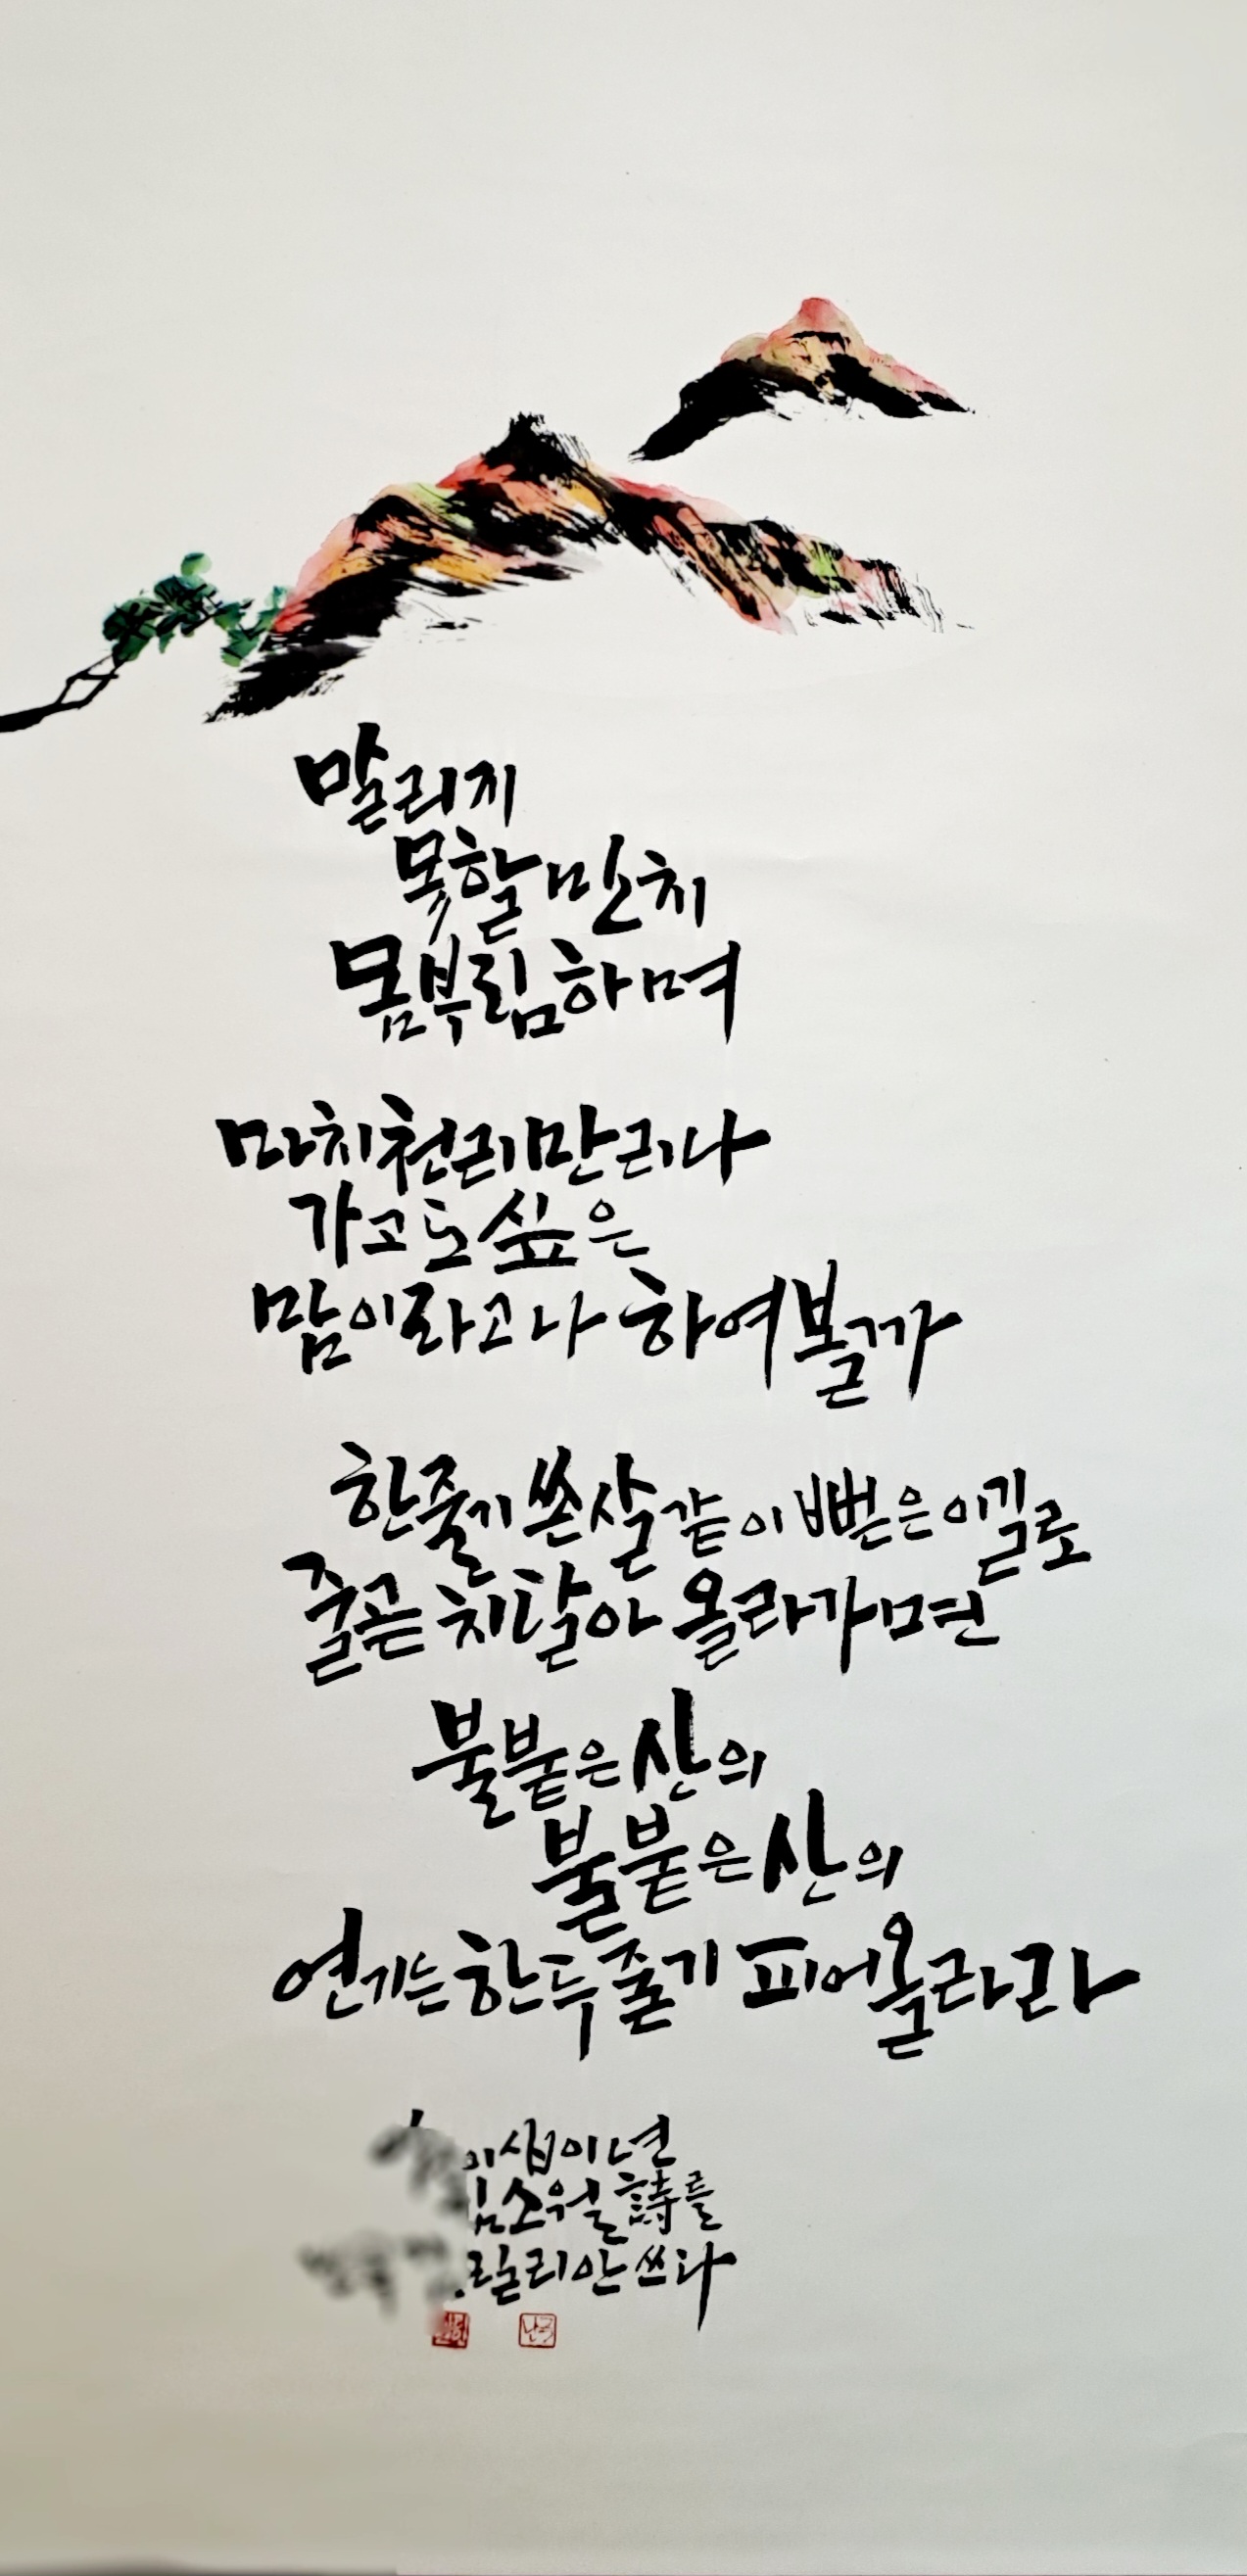 말리지
못할 만치
몸부림하며
마치 천리만리나
가고도 싶은
맘이라고나 하여볼까
한줄기 쏜살같이 뻗은 이길로
줄곧 치달아 올라가면
불붙은 산의
불붙은 산의
연기는 한두줄기 피어올라라
이십이년
소월 詩를
쓰다